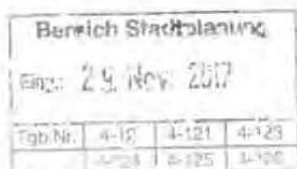 Bereich Stadtplanung
Eing.: 29. Nov. 2017
Tgb.Nr. 4-12 4-121 4-123
4-125